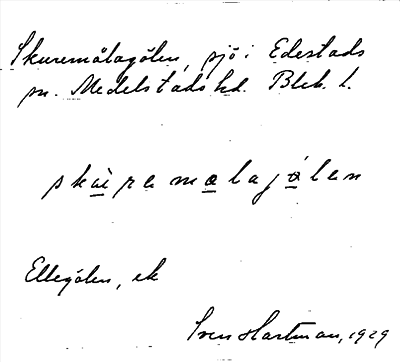 Skuremålagölen, sjö i Edestads
sn. Medelstads hd. Blek. l.
skùremålajǿlen
Ellegölen, ek
Sven Hartman, 1929